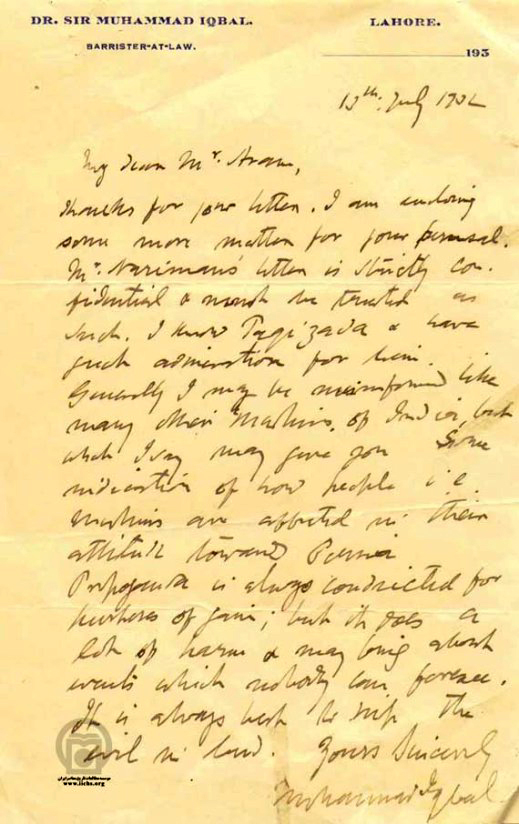 DR. SIR MUHAMMAD IQBAL.
BARRISTER-AT-LAW.
LAHORE.
193
13th. July 1932
My dear Mr. Aram,
Thanks for your letter. I am enclosing
some more matter for your perusal.
Mr. Nariman's letter is strictly con-
fidential & must be treated as
such. I know Taqizada & have
great admiration for him.
Generally I may be misinformed like
many other Muslims of India, but
what I say may give you some
indication of how people i.e.
Muslims are affected in their
attitude towards Persia
Propoganda is always conducted for
purposes of gain; but it does a
lot of harm & may bring about
events which nobody can foresee.
It is always best to nip the
evil in bud. Yours Sincerely
Mohammad Iqbal
www.iichs.org